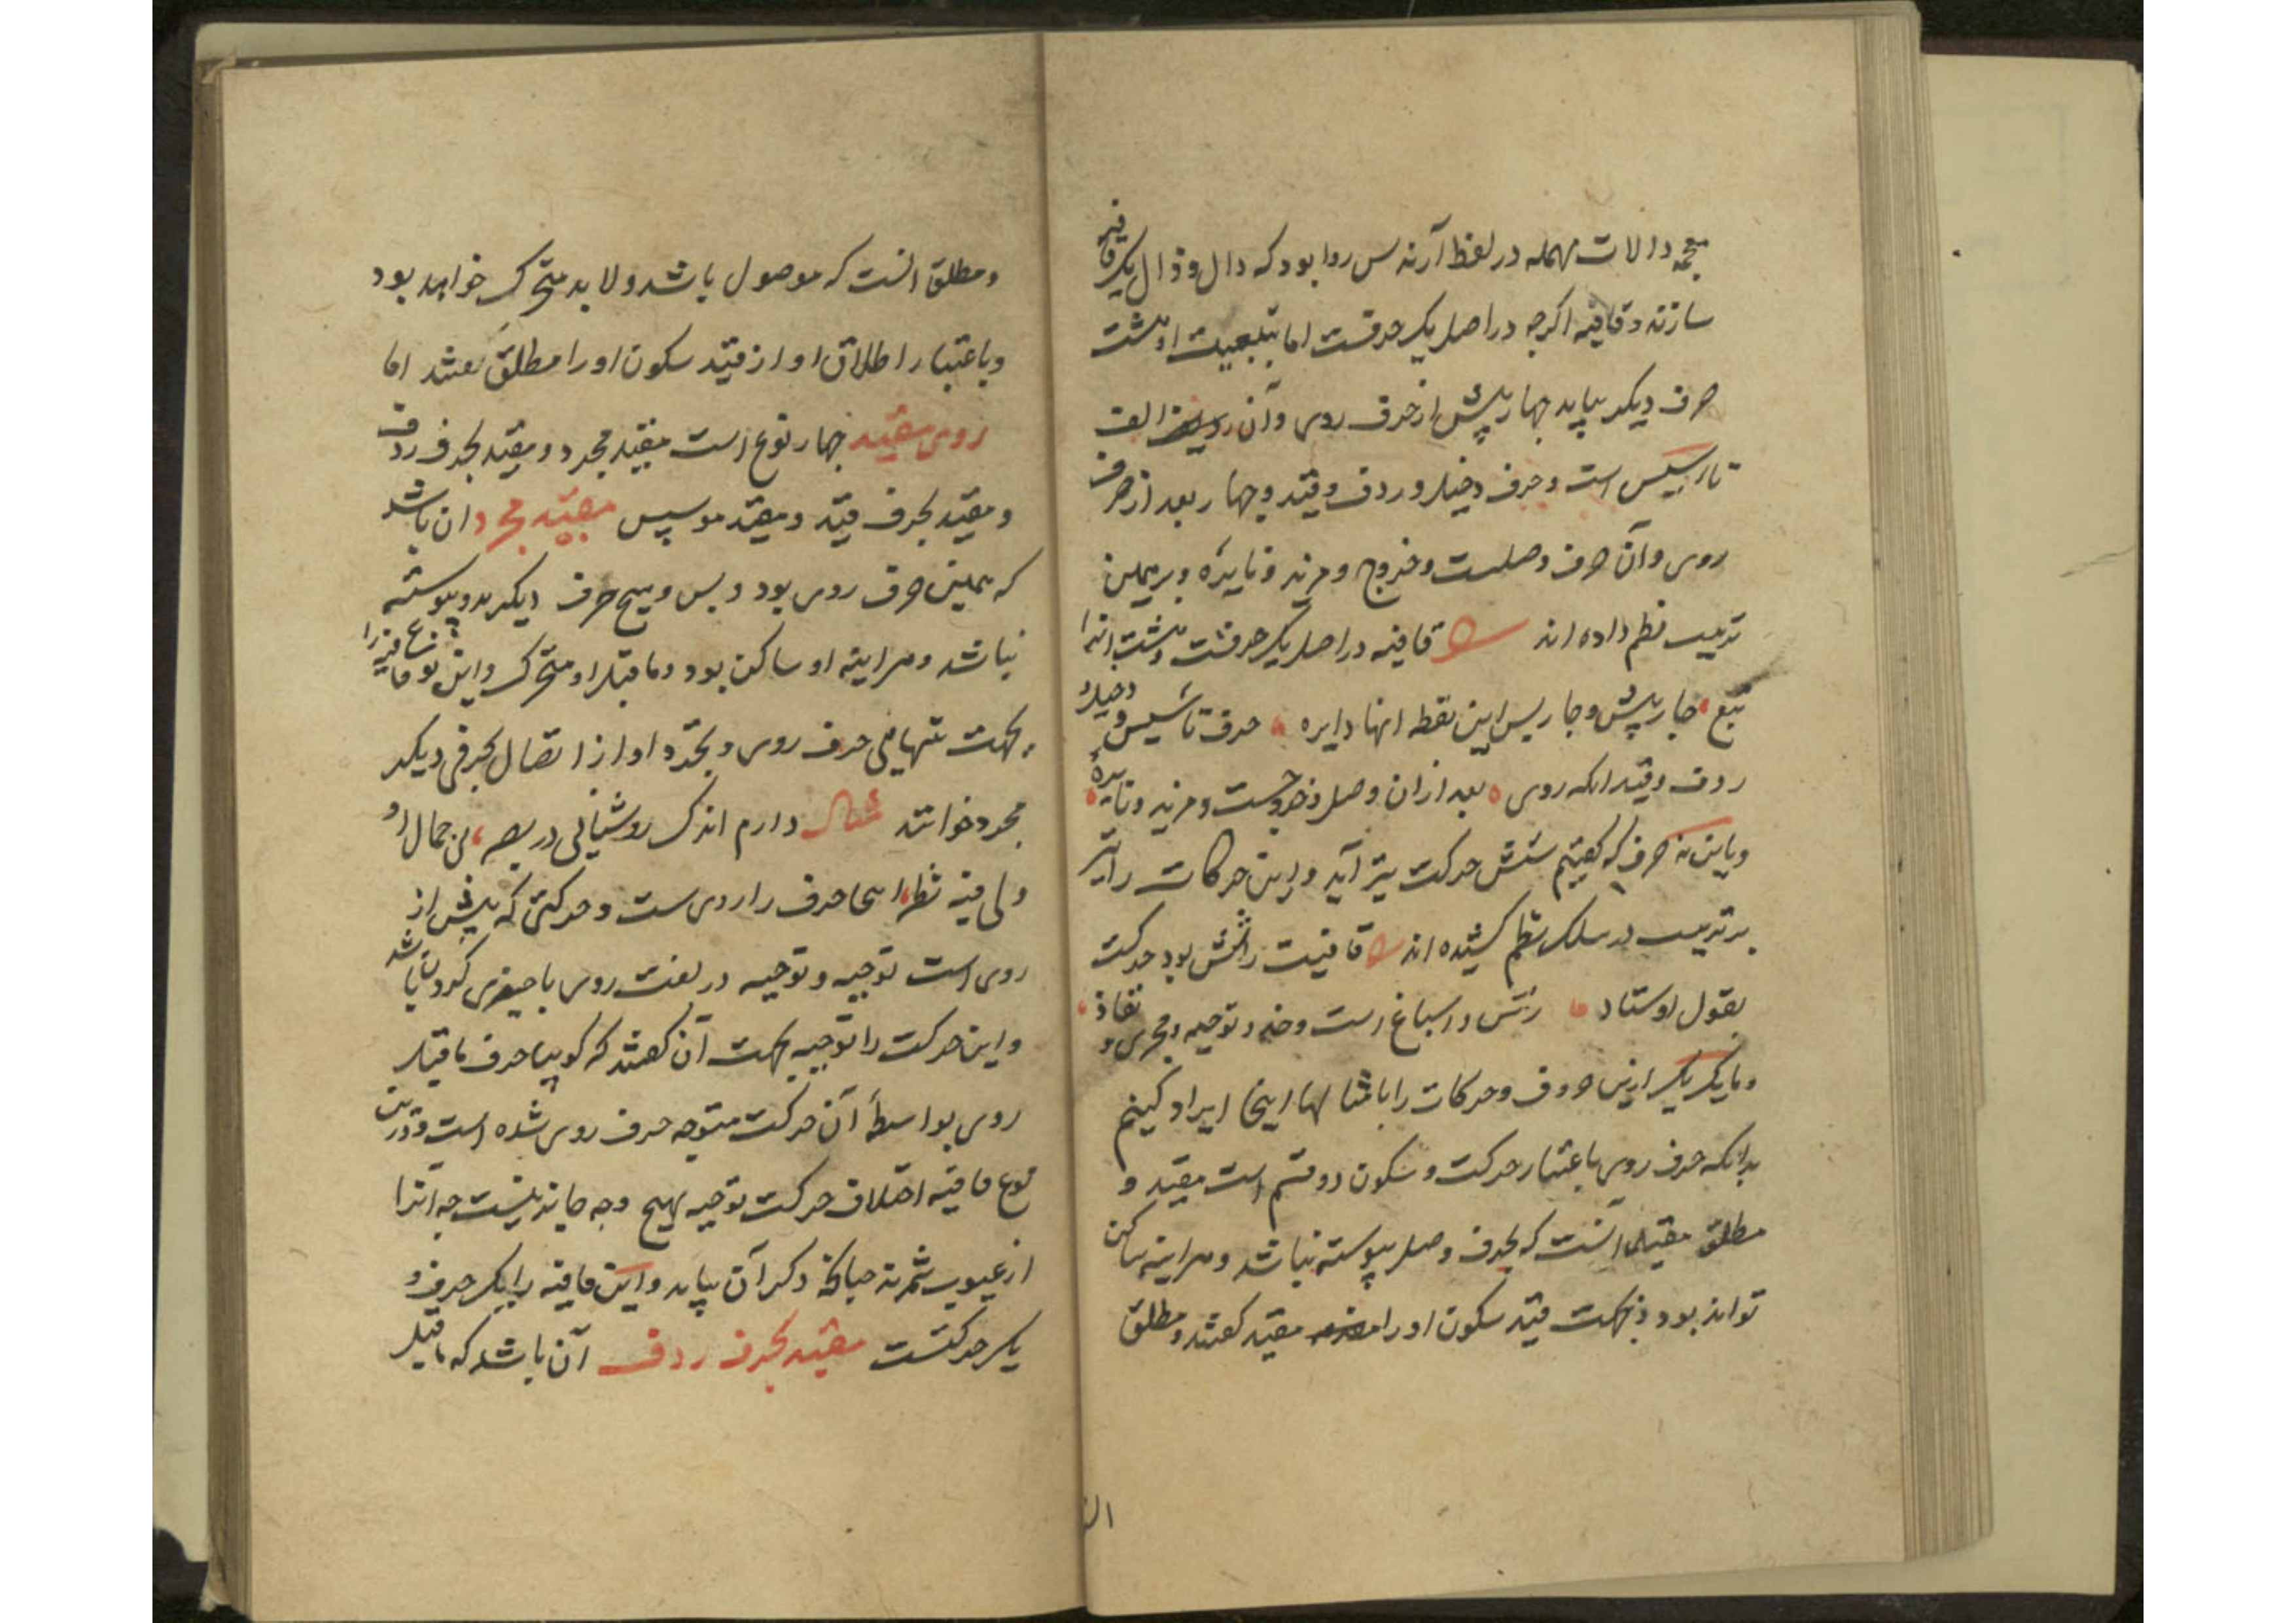 معجمه دالات مهمله در لفظ آرند پس روا بود که دال و ذال یک قافیه
سازند و قافیه اکرچه در اصل یک حرفست اما بتبعیت او هشت
حرف دیکر بیاید چهار پیش از حرف روی و آن الف
تاسیس است و حرف دخیل و ردف و قید و چهار بعد از حرف
روی و آن حرف وصلست و خروج و مزید و نایره و برهمین
ترتیب نظم داده اند قافیه در اصل یک حرفست و هشت انرا
تبع چار پیش و چار پس این نقطه انها دایره حرف تاسیس و دخیل و
ردف و قید انکه روی بعد ازان وصل و خروجست و مزید و نایره
و باین نه حرف که کفتیم شش حرکت نیز آید و این حرکات را نیز
بر ترتیب در سلک نظم کشیده اند قافیت را شش بود حرکت
بقول اوستاد رس و اشباع است و حذو و توجیه و مجری و نفاذ
و ما یک یک ازین حروف و حرکات را با مثالها اینجا ایراد کنیم
بدانکه حرف روی باعتبار حرکت و سکون دو قسم است مقید و
مطلق مقید آنست که بحرف وصل پیوسته نباشد و هراینه ساکن
تواند بود و بجهت قید سکون او را مقید کفتند و مطلق
و مطلق انست که موصول باشد و لابد متحرک خواهد بود
و باعتبار اطلاق او از قید سکون او را مطلق کفتند اما
روی مقید چهار نوع است مقید مجرد و مقید بحرف ردف
و مقید بحرف قید و مقید موسس مقید مجرد ان باشد
که همین حرف روی بود و بس و هیچ حرف دیکر بدو پیوسته
نباشد و هراینه او ساکن بود و ماقبل او متحرک و این نوع قافیه را
بجهت تنهایی حرف روی و تجرد او از اتصال بحرفی دیکر
مجرد خوانند مثال دارم اندک روشنایی در بصر بی جمال او
ولی فیه نظر اینجا حرف را رویست و حرکتی که پیش از
روی است توجیه و توجیه در لغت روی با چیزی کردن باشد
و این حرکت را توجیه بجهت آن کفتند که کویا حرف ماقبل
روی بواسطهٔ آن حرکت متوجه حرف روی شده است و درین
نوع قافیه اختلاف حرکت توجیه بهیچ وجه جایز نیست چه آنرا
از عیوب شمرند چنانکه ذکر آن بیاید و این قافیه را یک حرف و
یک حرکتست مقید بحرف ردف آن باشد که ماقبل